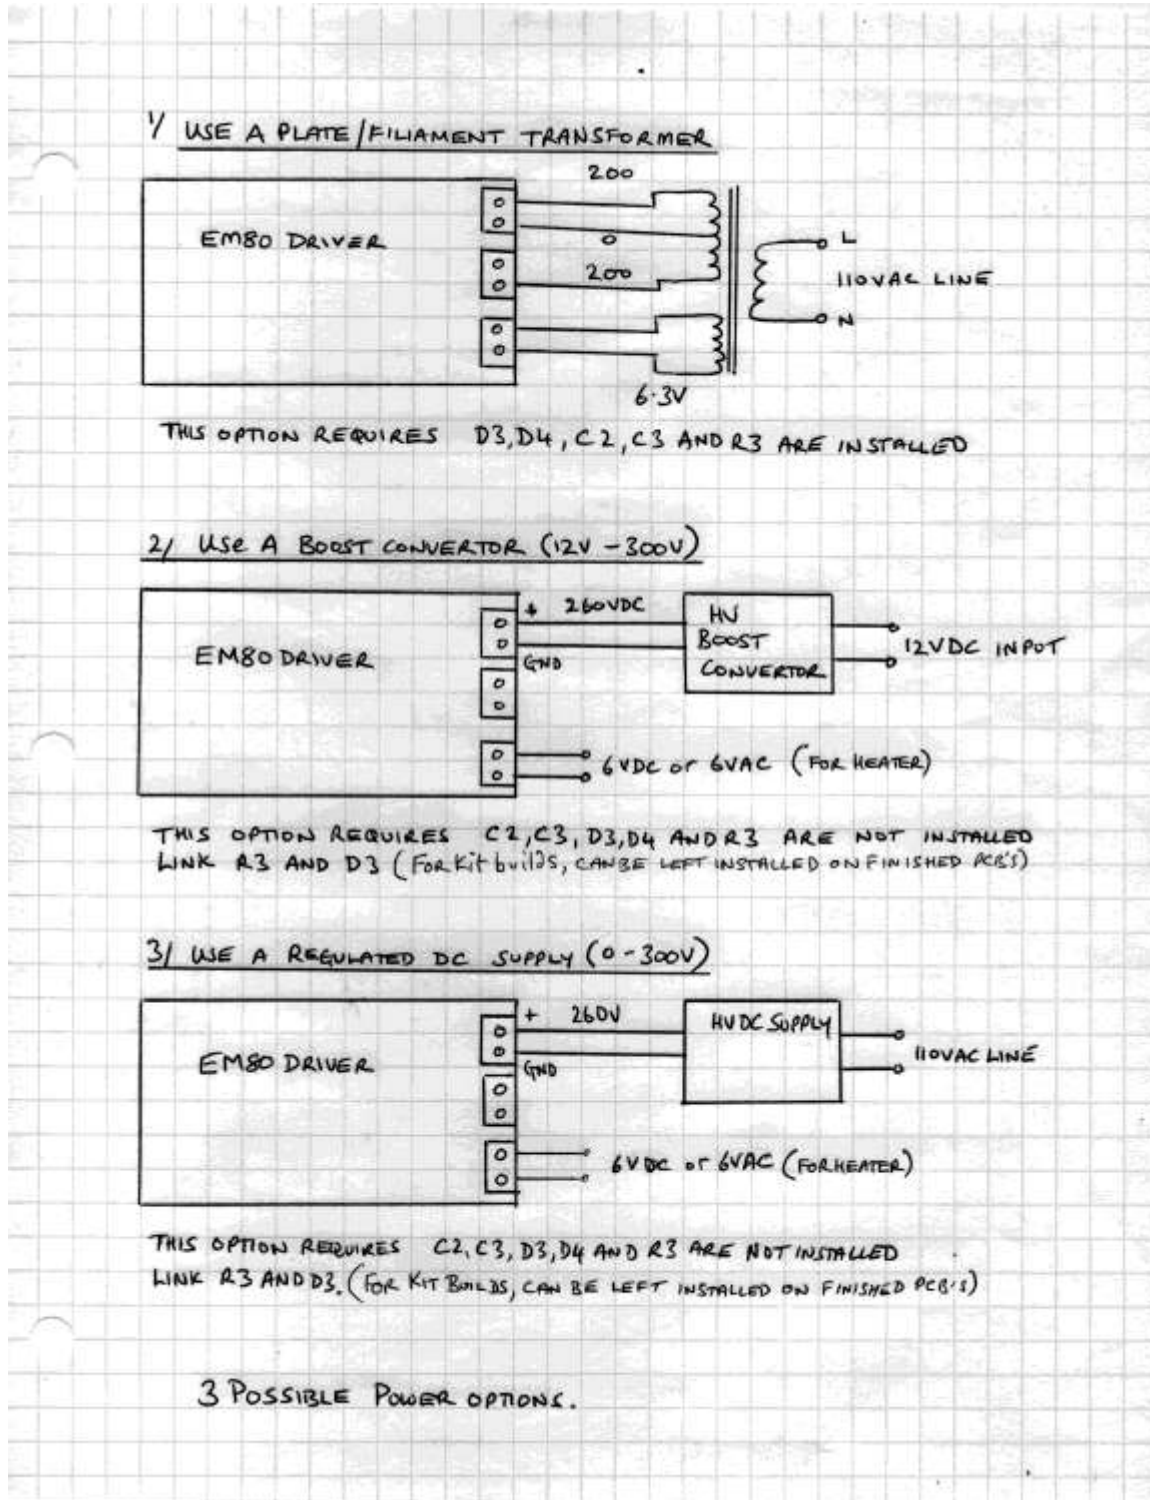 1/ USE A PLATE/FILIAMENT TRANSFORMER
200
EM80 DRIVER
0
200
L
110VAC LINE
N
6.3V
THIS OPTION REQUIRES D3,D4,C2,C3 AND R3 ARE INSTALLED
2/ USE A BOOST CONVERTOR (12V - 300V)
+ 260VDC
EM80 DRIVER
GND
HV
BOOST
CONVERTOR
12VDC INPUT
6VDC or 6VAC (FOR HEATER)
THIS OPTION REQUIRES C2,C3,D3,D4 AND R3 ARE NOT INSTALLED
LINK R3 AND D3 (FOR Kit builds, CAN BE LEFT INSTALLED ON FINISHED PCB'S)
3/ USE A REGULATED DC SUPPLY (0-300V)
+ 260V
EM80 DRIVER
GND
HV DC SUPPLY
110VAC LINE
6VDC or 6VAC (FOR HEATER)
THIS OPTION REQUIRES C2,C3,D3,D4 AND R3 ARE NOT INSTALLED
LINK R3 AND D3. (FOR KIT BUILDS, CAN BE LEFT INSTALLED ON FINISHED PCB'S)
3 POSSIBLE POWER OPTIONS.